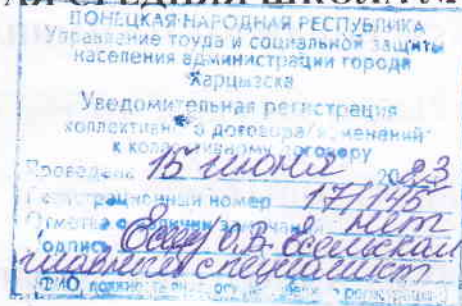 АЯ СРЕДНЯЯ ШКОЛА
ДОНЕЦКАЯ НАРОДНАЯ РЕСПУБЛИКА
Управление труда и социальной защиты
населения администрации города
Харцызска
Уведомительная регистрация
коллективного договора/изменений
к коллективному договору
Проведена 15 июня 2023
Регистрационный номер 17/145
Отметка о наличии замечаний нет
Подпись О.В.
главный специалист
ФИО, должность